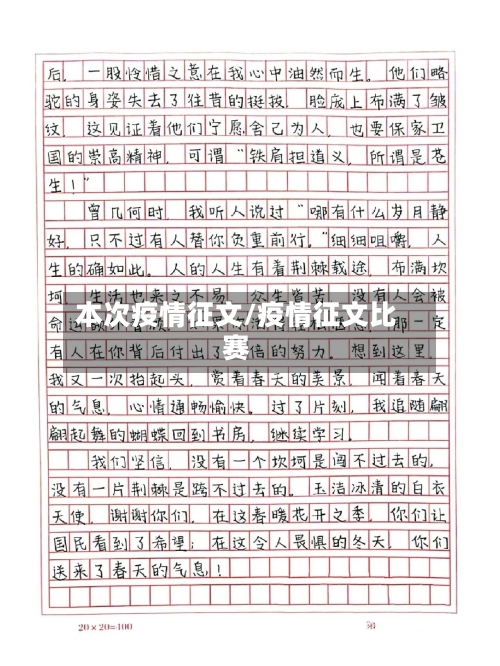 后，一股怜惜之意在我心中油然而生。他们略
驼的身姿失去了往昔的挺拔，脸庞上布满了皱
纹，这见证着他们宁愿舍己为人，也要保家卫
国的崇高精神，可谓“铁肩担道义，所谓是苍
生！”
曾几何时，我听人说过“哪有什么岁月静
好，只不过有人替你负重前行。”细细咀嚼，人
生的确如此。人的人生有着荆棘载途，布满坎
坷，生活也来之不易，众生皆苦，没有人会被
本次疫情征文/疫情征文比
赛
命运 那一定
有人在你背后付出了 倍的努力。想到这里，
我又一次抬起头，赏着春天的美景，闻着春天
的气息，心情通畅愉快。过了片刻，我追随翩
翩起舞的蝴蝶回到书房，继续学习。
我们坚信，没有一个坎坷是闯不过去的，
没有一片荆棘是跨不过去的。玉洁冰清的白衣
天使，谢谢你们，在这春暖花开之季，你们让
国民看到了希望；在这令人畏惧的冬天，你们
送来了春天的气息！
20×20=400